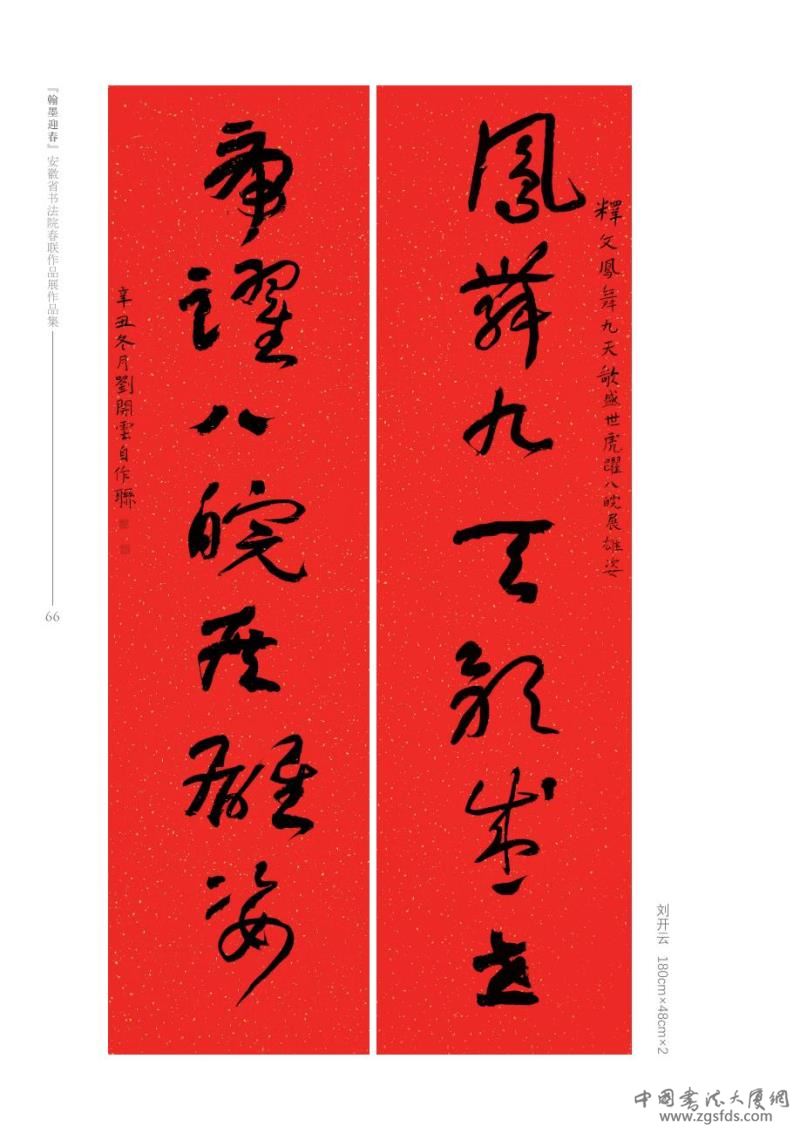 鳳舞九天歌盛世
釋文鳳舞九天歌盛世虎躍八皖展雄姿
虎躍八皖展雄姿
辛丑冬月劉開雲自作聯
『翰墨迎春』安徽省书法院春联作品展作品集
66
刘开云 180cm×48cm×2
中國書法大廈網
www.zgsfds.com